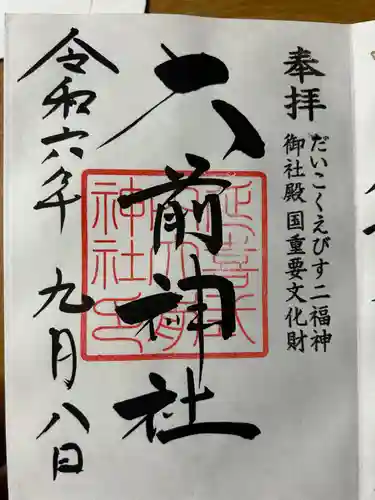 奉拝
だいこくえびす二福神
御社殿国重要文化財
大前神社
延喜式
内大前
神社印
令和六年九月八日